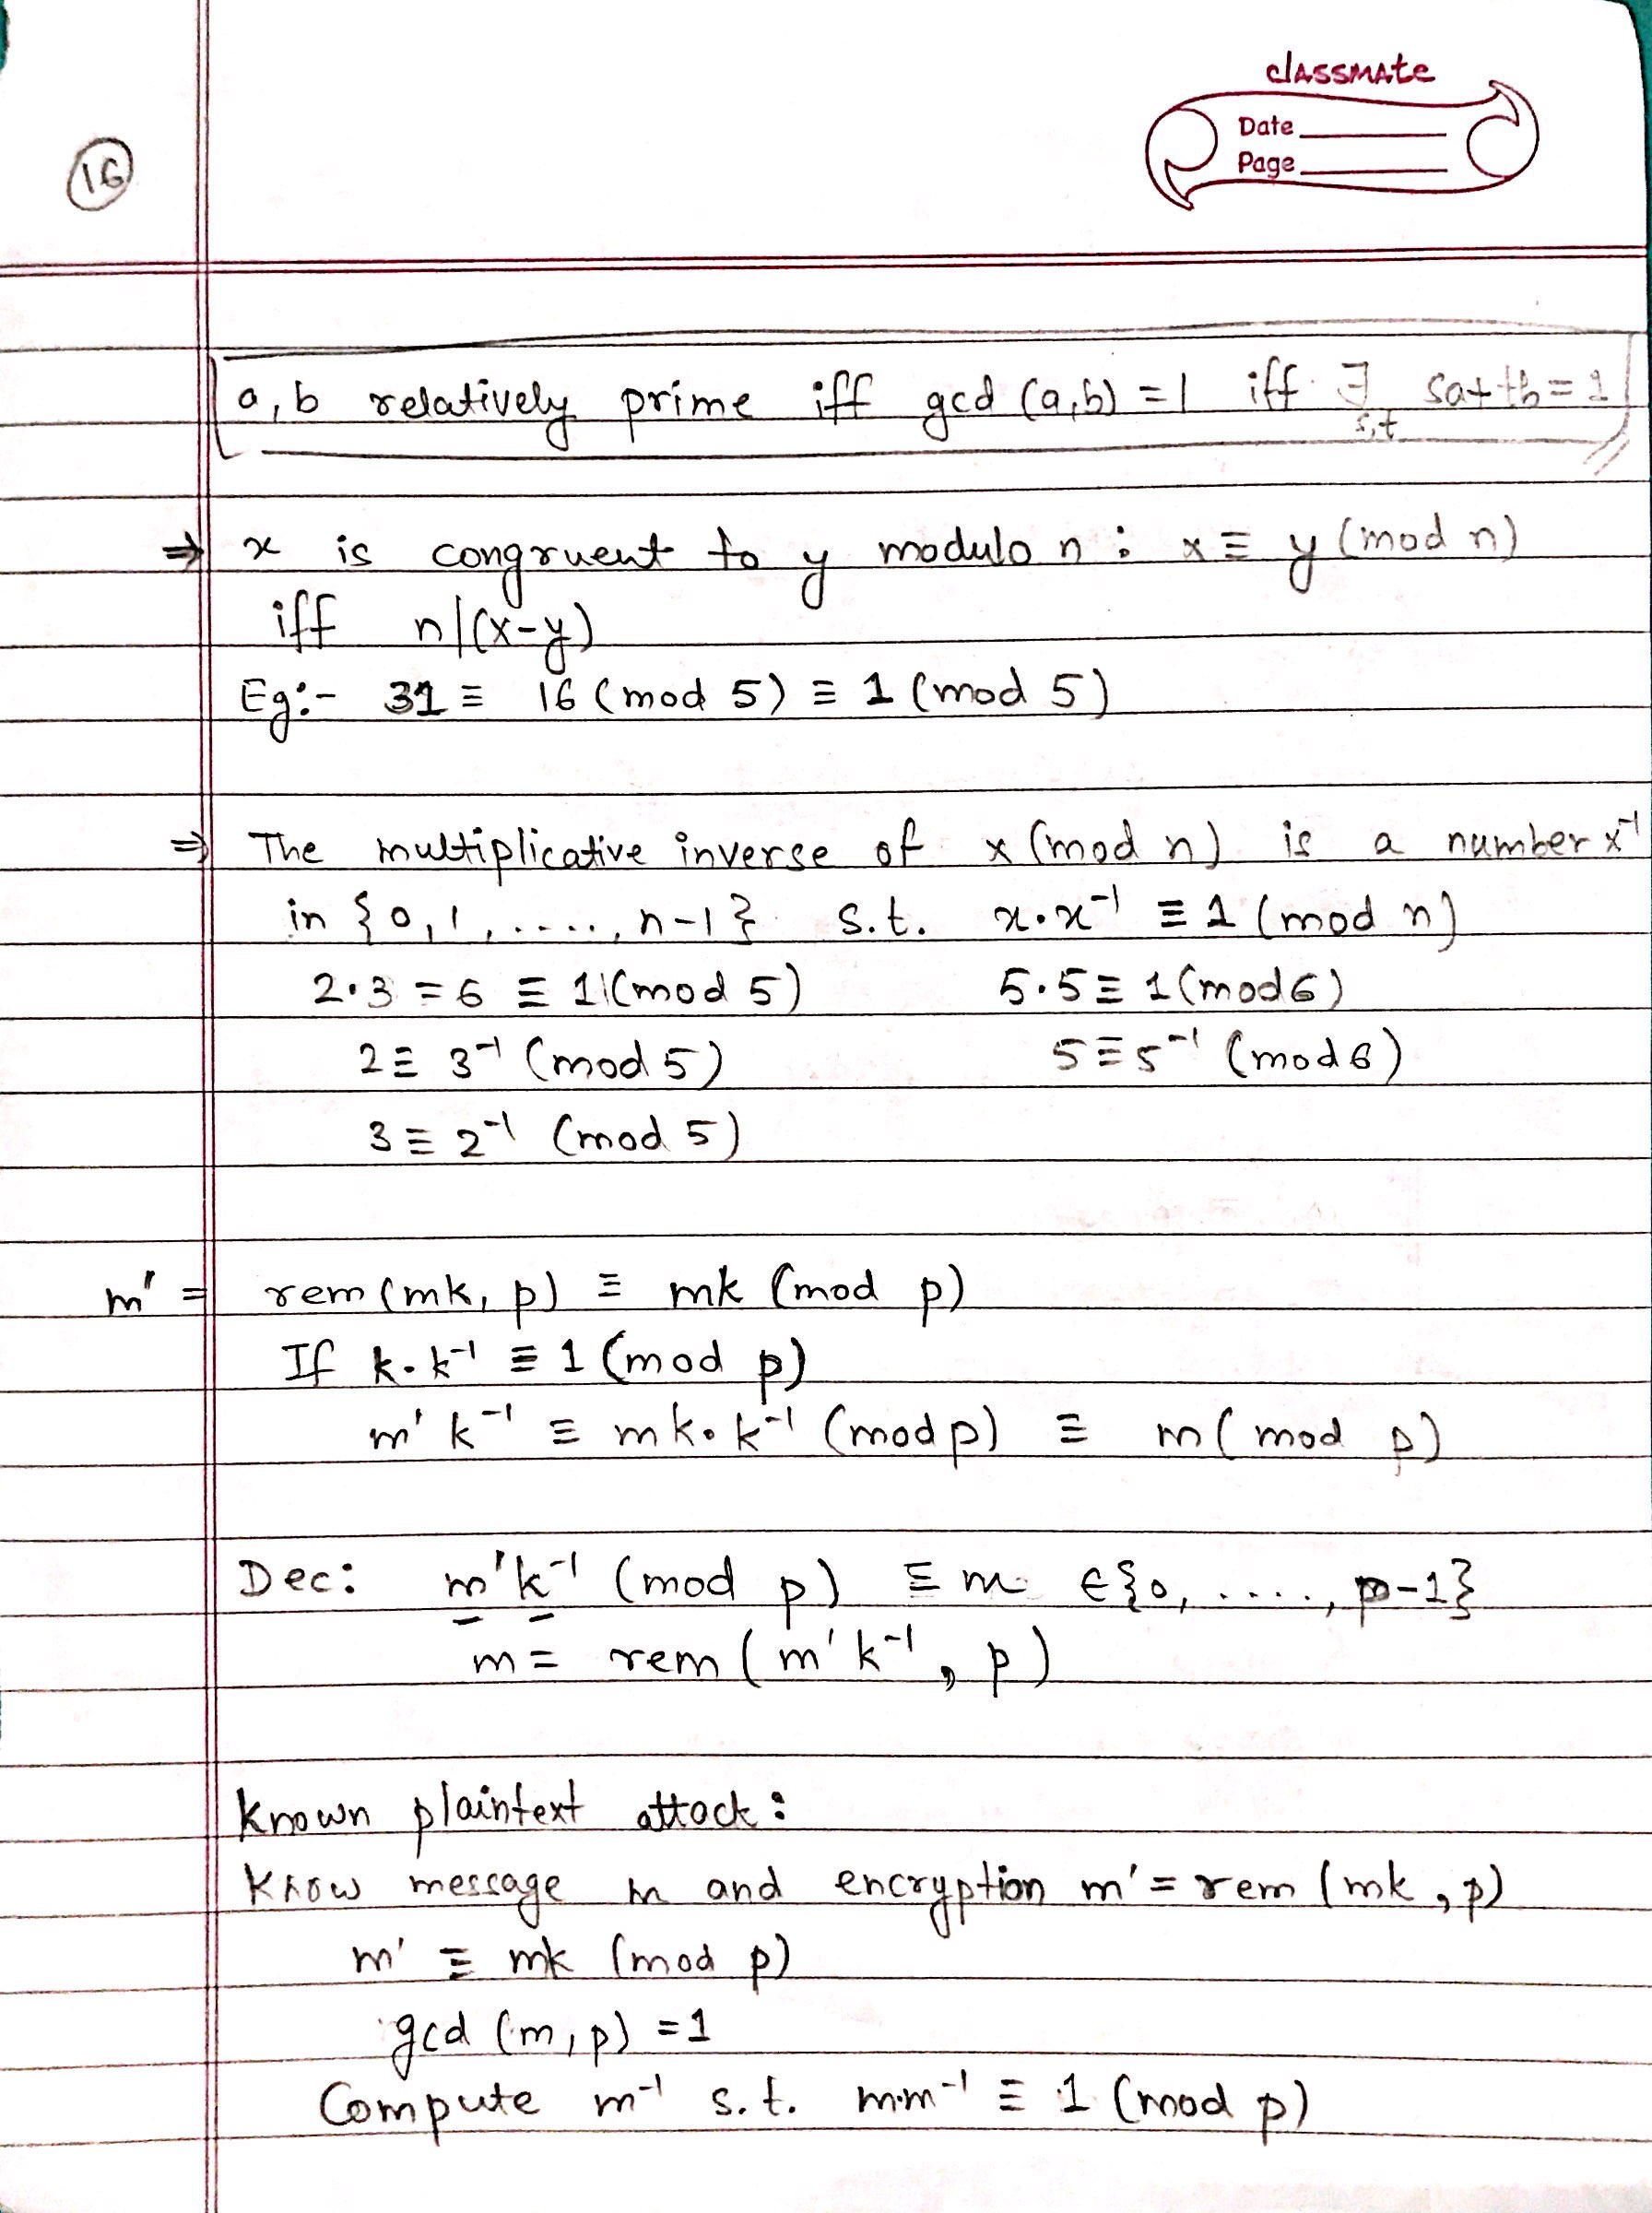 classmate
Date
Page
16
a, b relatively prime iff gcd (a,b) = 1 iff ∃ s,t sa+tb = 1
⇒ x is congruent to y modulo n : x ≡ y (mod n)
iff n|(x-y)
Eg:- 31 ≡ 16 (mod 5) ≡ 1 (mod 5)
⇒ The multiplicative inverse of x (mod n) is a number x⁻¹
in {0,1,.....,n-1} s.t. x·x⁻¹ ≡ 1 (mod n)
2·3 = 6 ≡ 1 (mod 5) 5·5 ≡ 1 (mod 6)
2 ≡ 3⁻¹ (mod 5) 5 ≡ 5⁻¹ (mod 6)
3 ≡ 2⁻¹ (mod 5)
m' = rem (mk, p) ≡ mk (mod p)
If k·k⁻¹ ≡ 1 (mod p)
m' k⁻¹ ≡ mk·k⁻¹ (mod p) ≡ m (mod p)
Dec: m'k⁻¹ (mod p) ≡ m ∈{0,.....,p-1}
m = rem (m'k⁻¹, p)
Known plaintext attack:
Know message m and encryption m' = rem (mk, p)
m' ≡ mk (mod p)
gcd (m, p) = 1
Compute m⁻¹ s.t. m·m⁻¹ ≡ 1 (mod p)